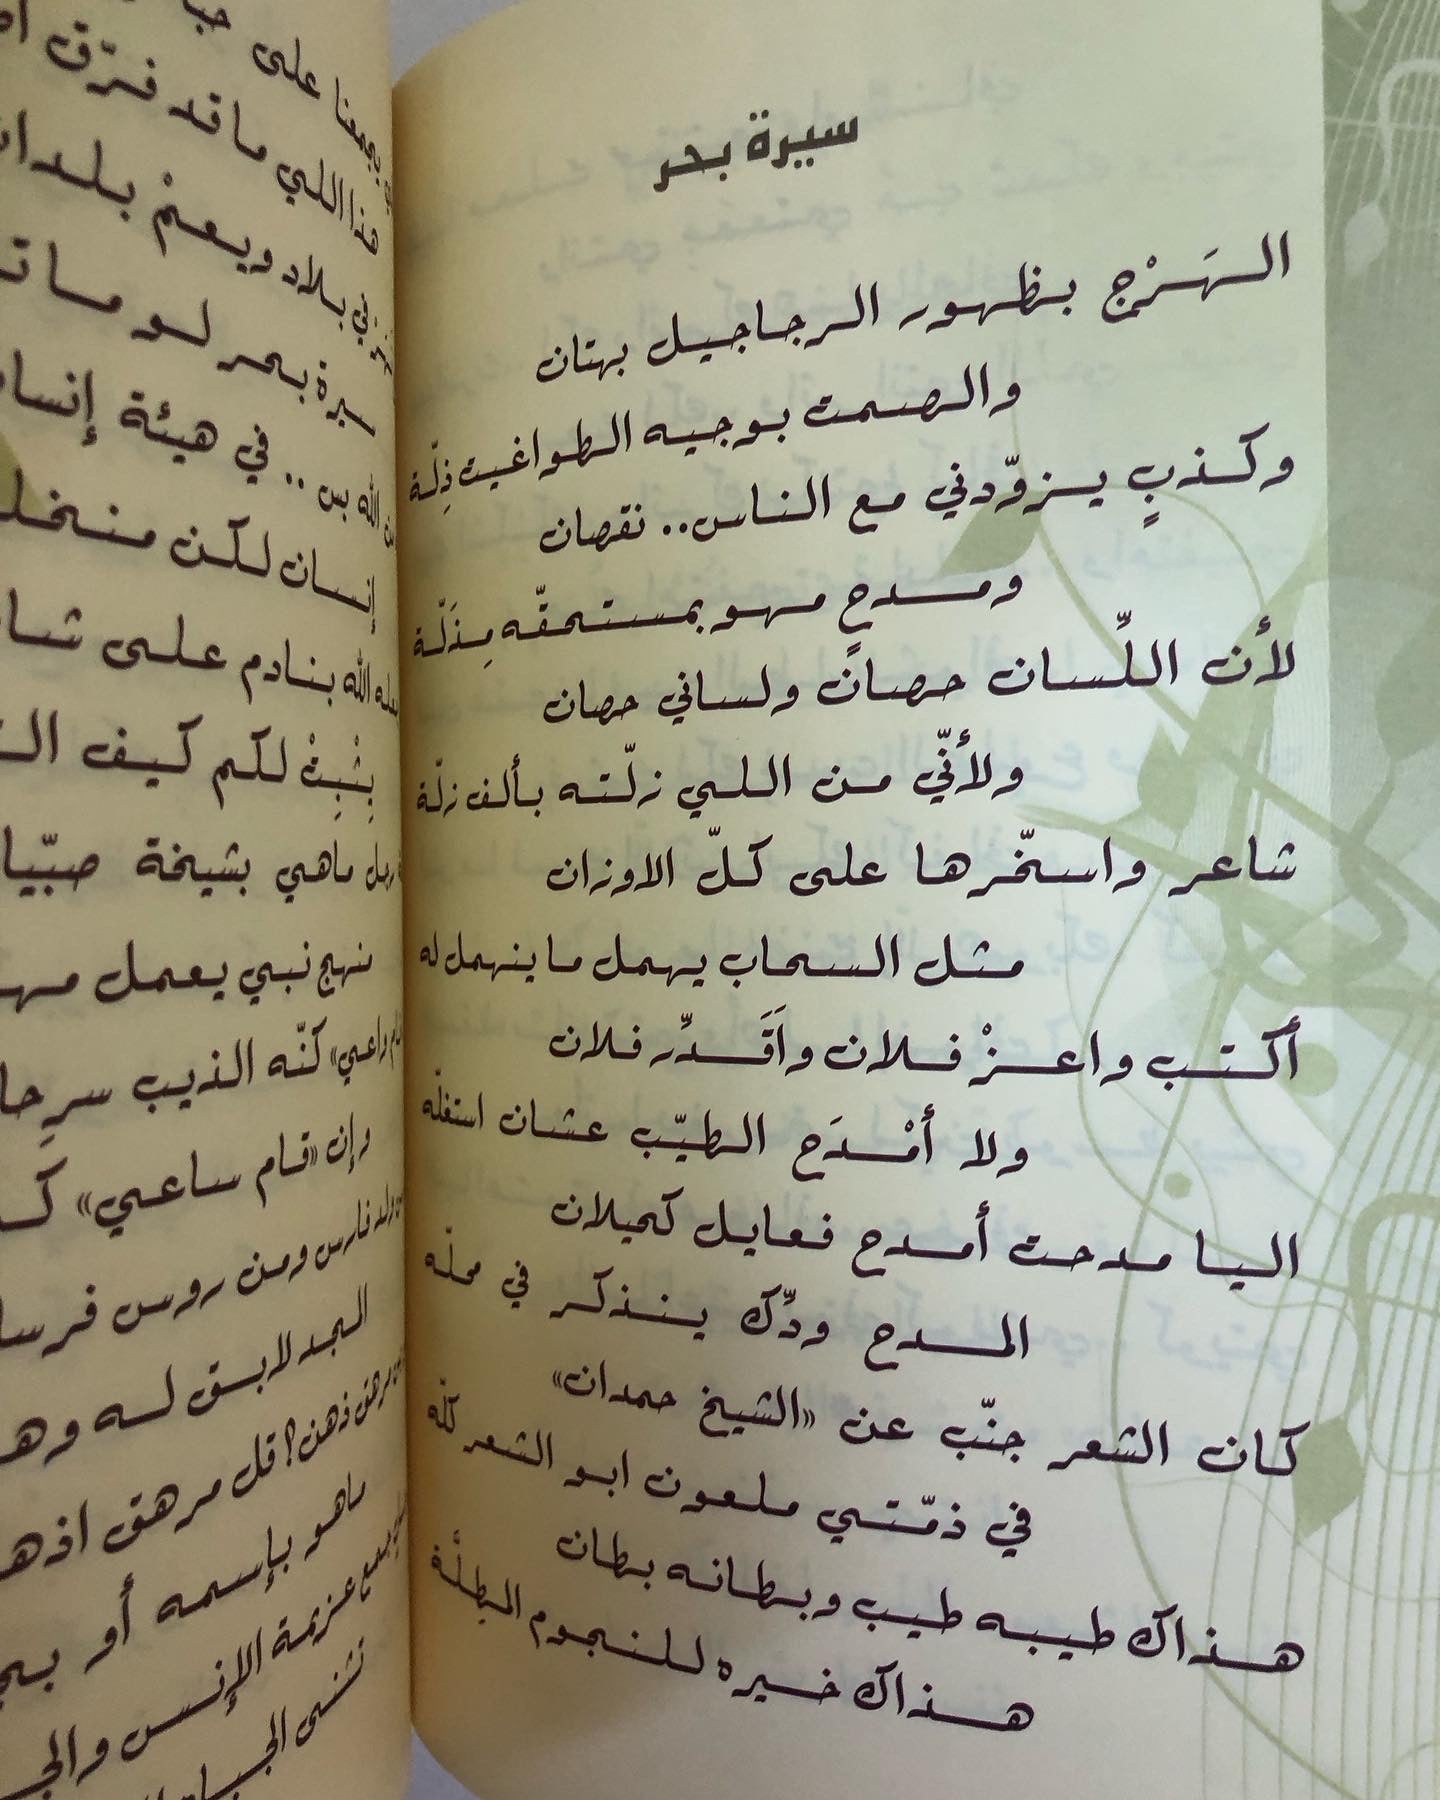 سيرة بحر
الـهَـرْج بـظـهـور الـرجـاجـيـل بهتان
والـصـمـت بـوجـيـه الـطـواغـيـت ذِلّـة
وكـذبٍ يـزوّدنـي مـع الـنـاس.. نقصان
ومـدحٍ مـهـو بمستحقّـه مِـذَلّـة
لأن اللِّسان حصانٌ ولساني حصان
ولأنّي من اللي زلّته بألف زلّة
شاعر واسخّرها على كلّ الاوزان
مثل السحاب يهمل ما ينهمل له
أكتب واعزْ فلان واَقَدِّر فلان
ولا أمْدَح الطيّب عشان استغلّه
اليا مدحت أمدح فعايل كحيلان
المدح ودّك ينذكر في محلّه
كان الشعر جنّب عن «الشيخ حمدان»
في ذمّتي ملعون ابو الشعر كلّه
هذاك طيبه طيب وبطانه بطان
هذاك خيره للنجوم المطلّة
يجمعنا على
هذا اللي ما قد فرّق
في بلاد ويعمْ
سيرة بحر لو
الله بس .. في هيئة
إنسان لكن
الله بنادم على
بِثْبِتْ لكم كيف
ماهي بشيخة
نهج نبي يعمل
كنّه الذيب سرحا
وإن «قام ساعي»
فارس ومن روس
المجد لابق له
ذهن؟ قل مرهق
ماهو بإسمه أو
عزيمة الإنس
تثني